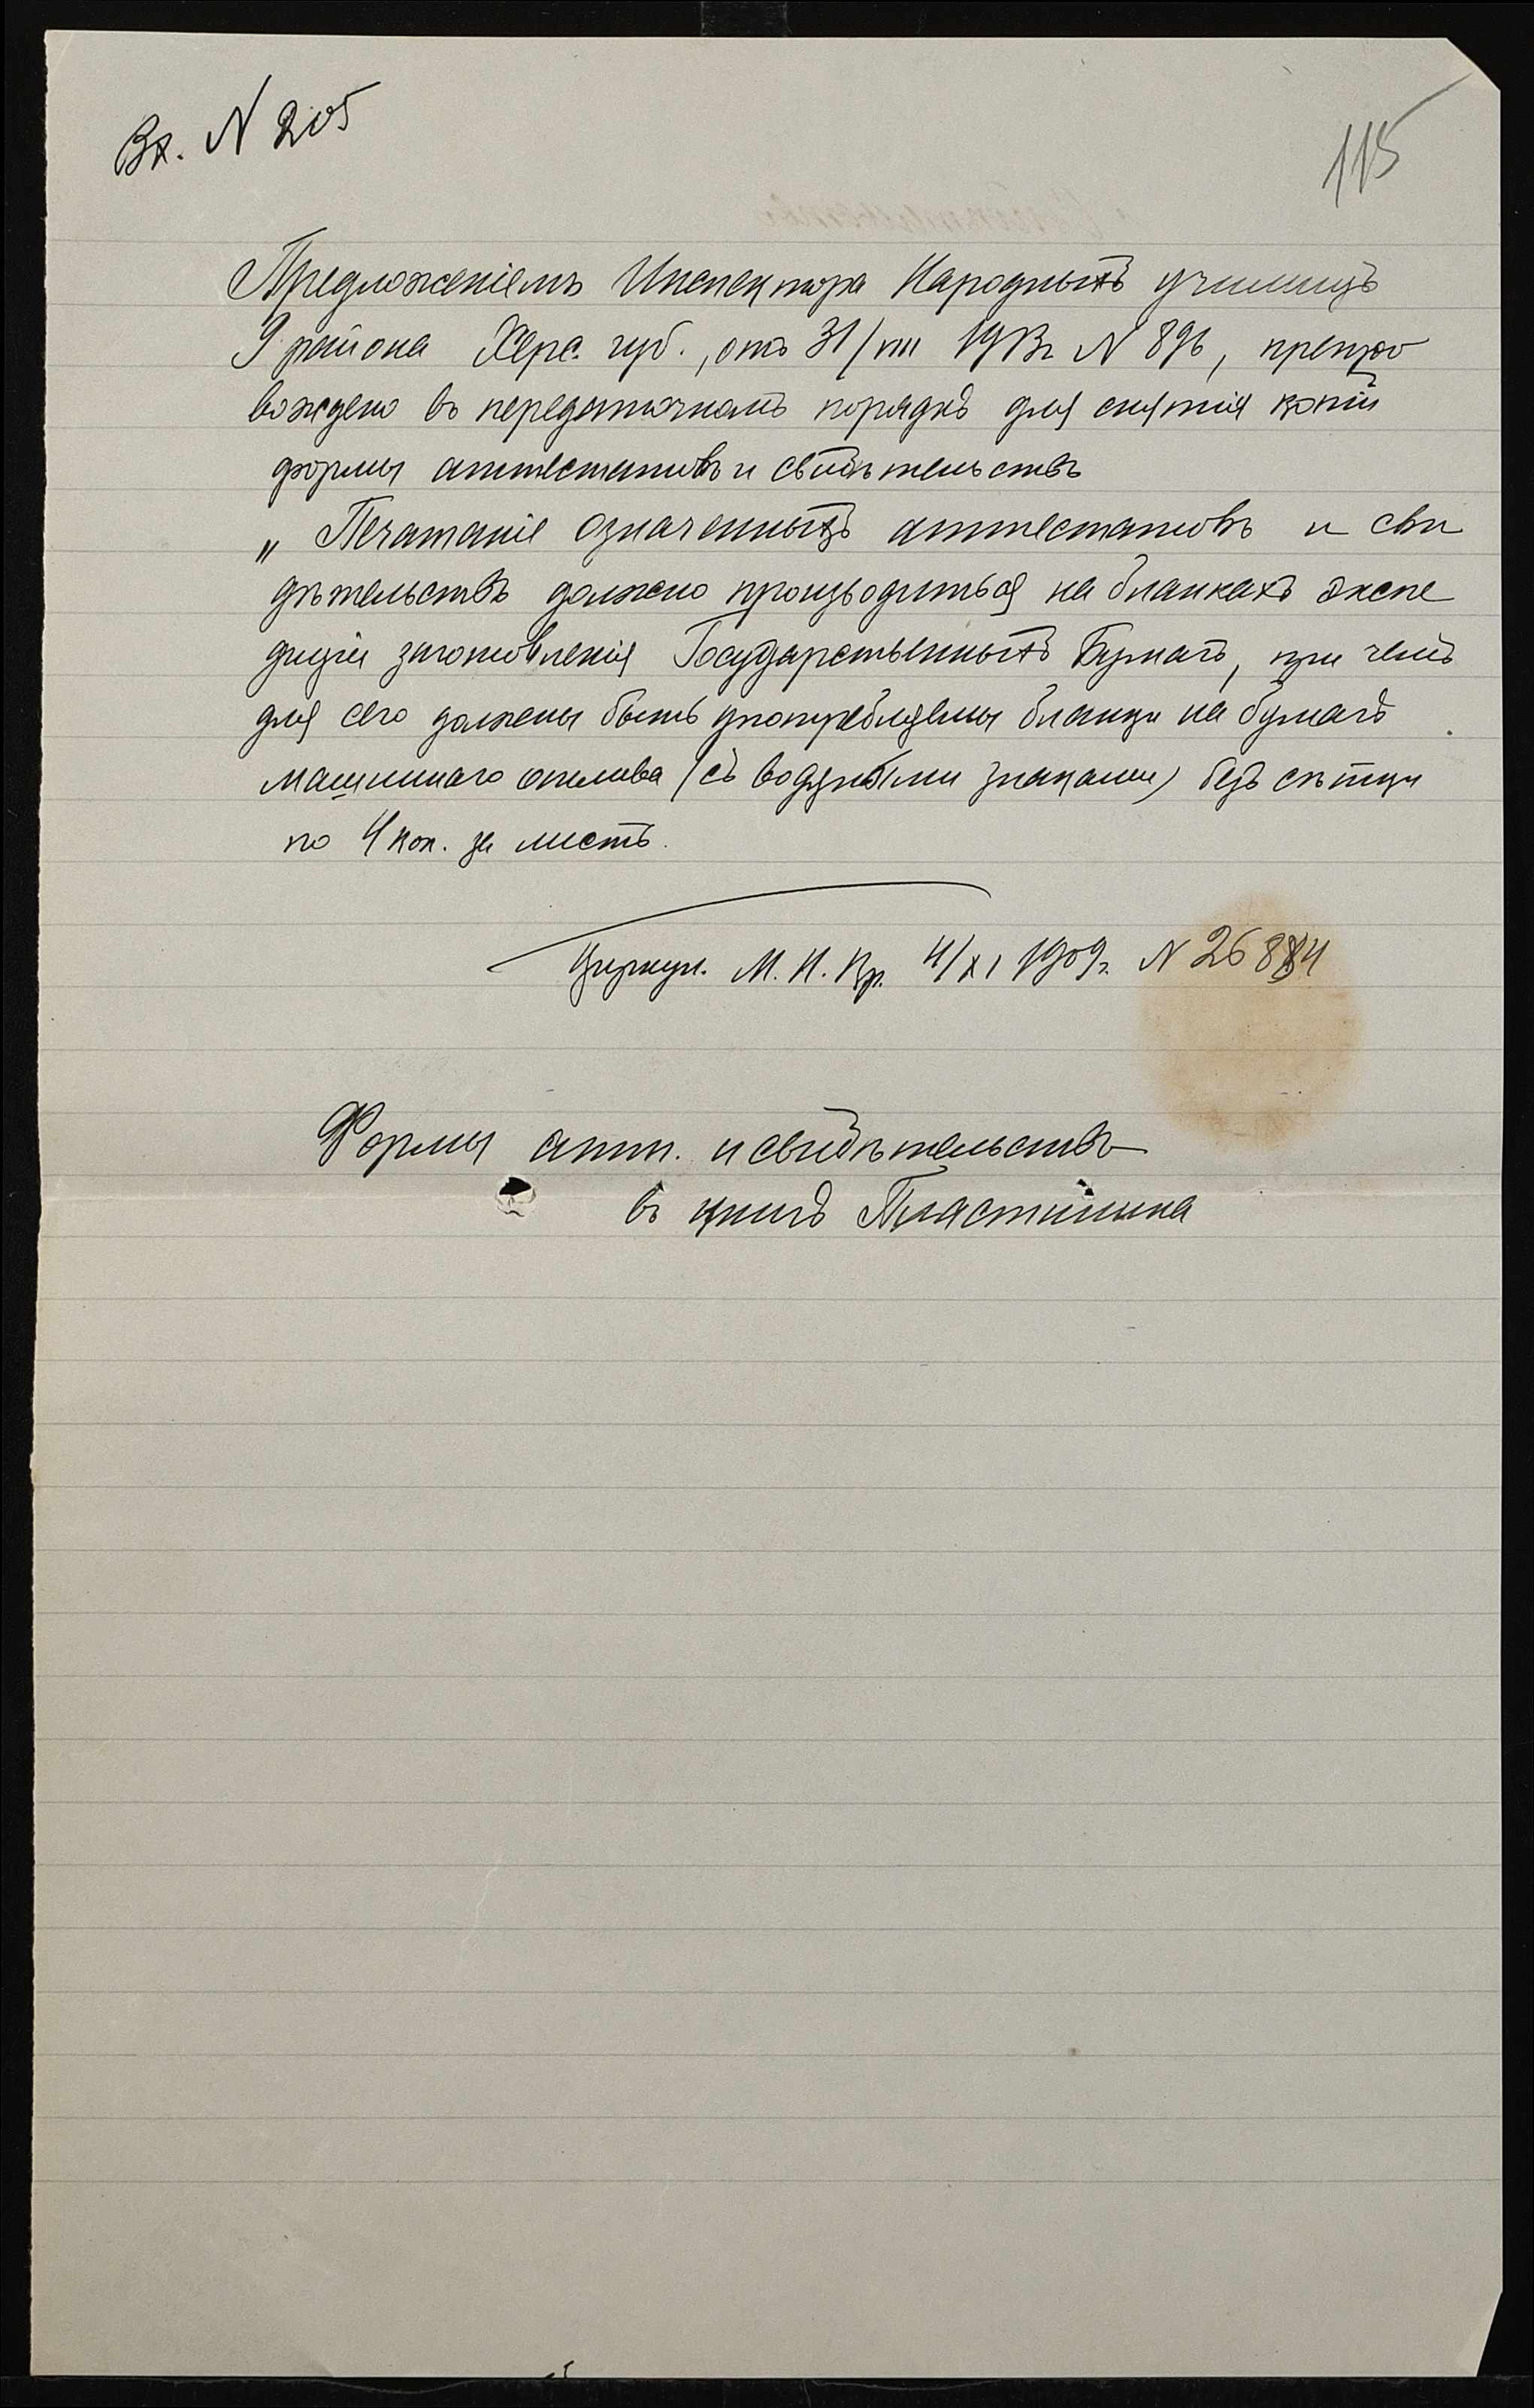 Вх. N 205
115
Предложеніемъ Инспектора Народныхъ училищъ
9 района Херс. губ., отъ 31/VIII 1913 г. N 896, препро
вождено въ передаточномъ порядкѣ для снятія копіи
формы аттестатовъ и свидѣтельствъ
„Печатаніе означенныхъ аттестатовъ и сви
дѣтельствъ должно производиться на бланкахъ экспе
диціи заготовленія Государственныхъ Бумагъ, при чемъ
для сего должены быть употребляемы бланки на бумагѣ
машиннаго отлива (съ водяными знаками) безъ сѣтки
по 4 коп. за листъ.
Циркул. М. Н. Пр. 4/XI 1909 г. N 26884
Формы атт. и свидѣтельствъ
въ книгѣ Пластинина